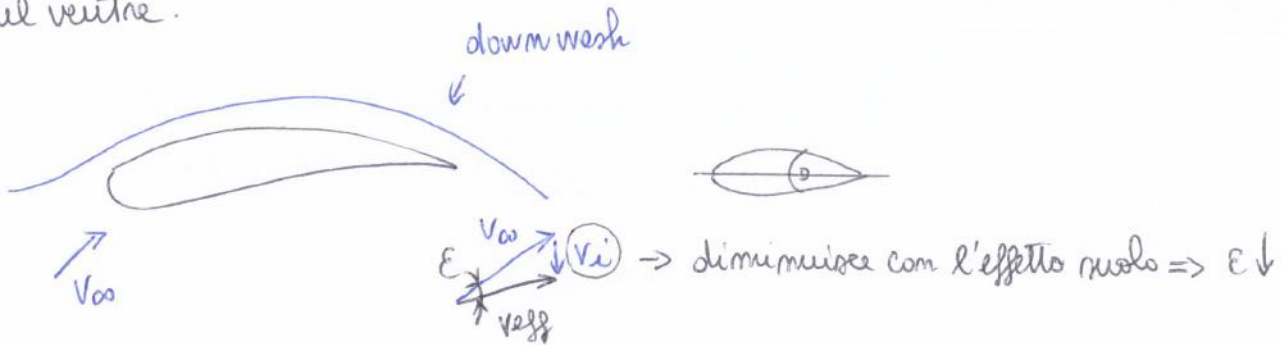 il ventre.
downwash
V∞
V∞
Vi -> diminuisce con l'effetto suolo => ε↓
ε
Veff